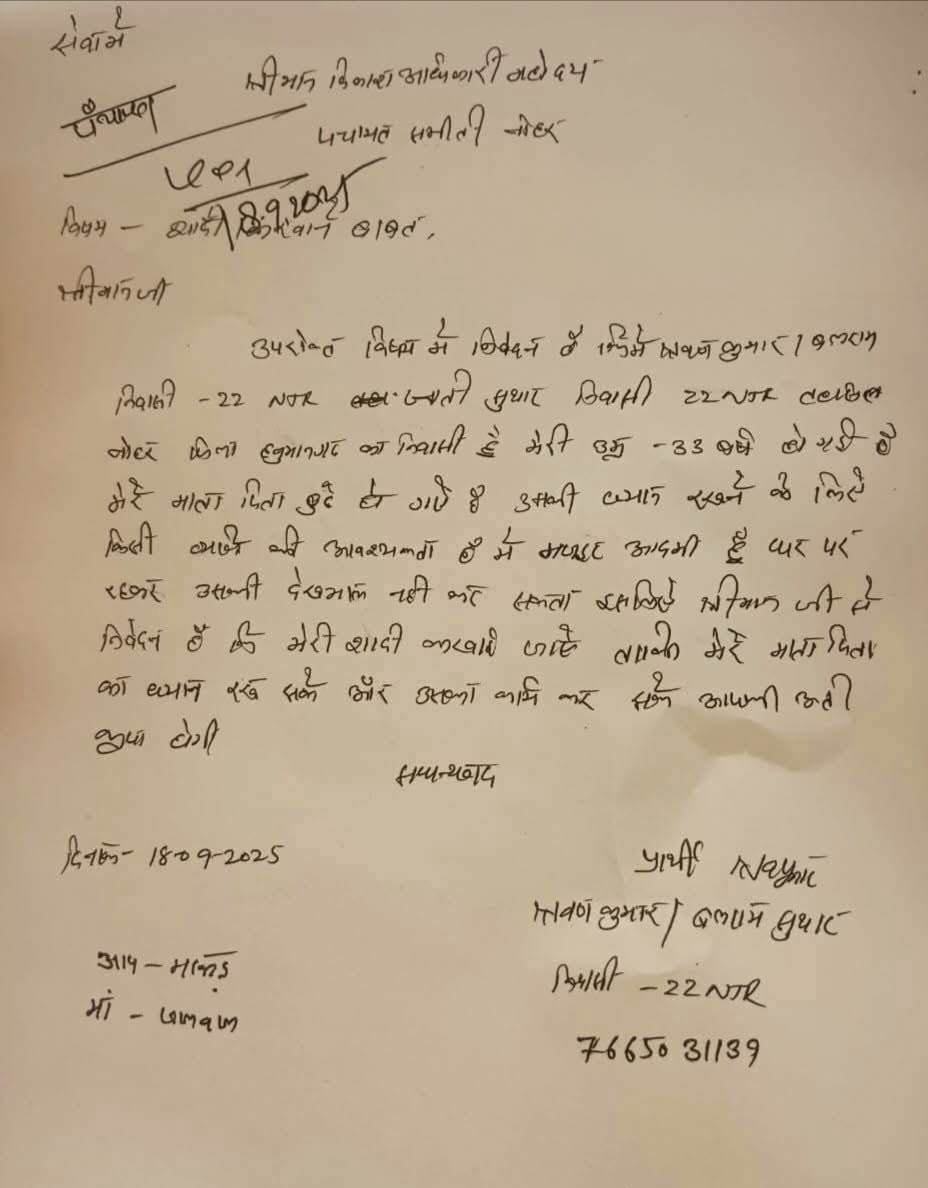 सेवामे
श्रीमान विकाश अधिकारी महोदय
पंचायत समीती नोहर
18.9.2025
विषय - शादी करवाने बाबत,
श्रीमानजी
उपरोक्त विषय मे निवेदन है कि मै श्रवण कुमार / बलराम
निवासी - 22 NTR जाती सुथार निवासी 22 NTR तहसिल
नोहर जिला हनुमानगढ का निवासी है मेरी उम्र - 33 वर्ष हो गयी है
मेरे माता पिता बुढे हो गऐ है उसकी ध्यान रखने के लिऐ
किसी व्यक्ति की आवश्यकता है मै मजदुर आदमी हुँ घर पर
रहकर उसकी देखभाल नही कर सकता इसलिऐ श्रीमान जी से
निवेदन है कि मेरी शादी करवाई जाऐ ताकी मेरे माता पिता
का ध्यान रख सके और उसका कार्य कर सके आपकी अती
कृपा होगी
सधन्यवाद
दिनाक - 18-09-2025
प्रार्थी
श्रवण कुमार / बलराम सुथार
निवासी - 22 NTR
76650 31139
मां -